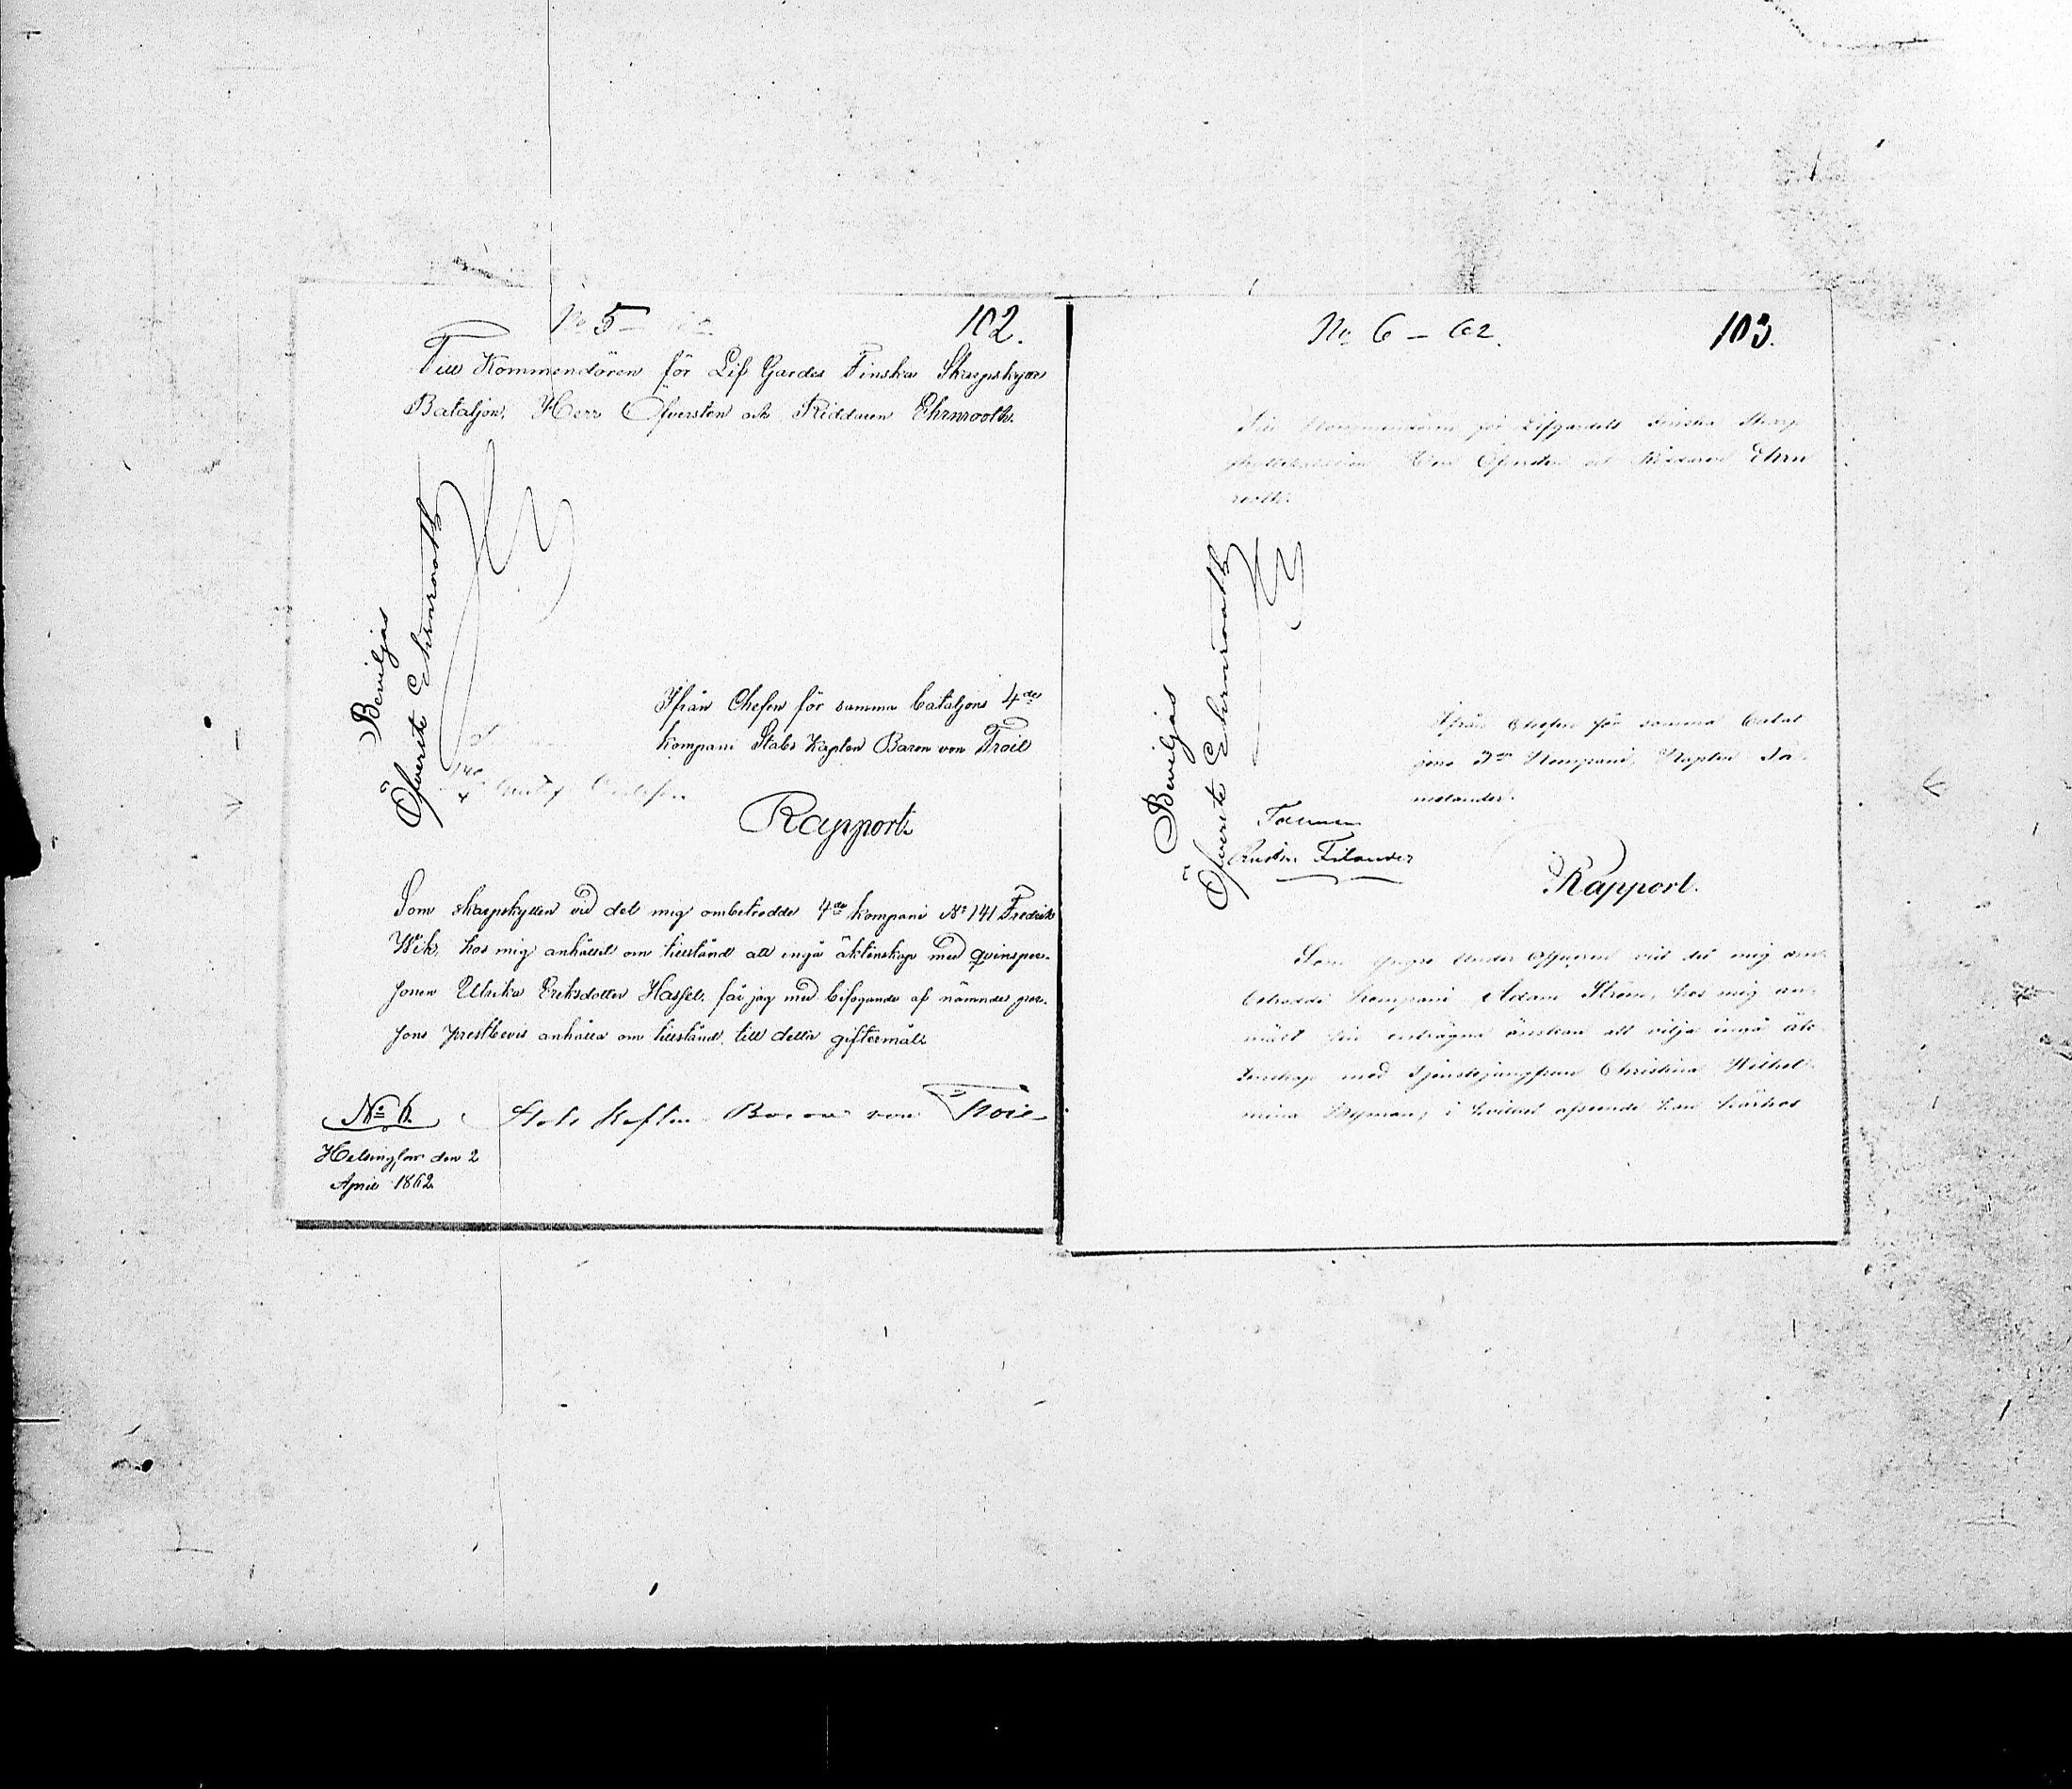 No 5 – 62
102.
Till Kommendören för Lif Gardes Finska Skarpskytte
Bataljon, Herr Öfversten och Riddaren Ehrnrooth.
Beviljas
Öfverste Ehrnrooth
Ifrån Chefen för samma bataljons 4de
kompani Stabs Kapten Baron von Troil
Rapport.
Som skarpskytten vid det mig ombetrodde 4de kompani No 141 Fredrik
Wik, hos mig anhållit om tillstånd att ingå äktenskap med qvinsper-
sonen Ulrika Eriksdotter Hassel, får jag med bifogande af nämnde per-
sons prestbevis anhålla om tillstånd till detta giftermål.
Stabs Kapten Baron von Troil
No 6.
Helsingfors den 2
April 1862.
No 6 – 62.
103.
Till Kommendören för Lifgardets Finska Skarp-
skyttebataljon Herr Öfversten och Riddaren Ehrn
rooth.
Beviljas
Öfverste Ehrnrooth
Ifrån Chefen för samma batal
jons 3dje Kompani, Kapten
Filander
Rapport.
Som yngre Under Officeren vid det mig om-
betrodde kompani Adam Ström, hos mig an-
mält sin enträgna önskan att vilja ingå äk-
tenskap med tjenstejungfrun Christina Wilhel-
mina Nyman, i hvilket afseende han härhos